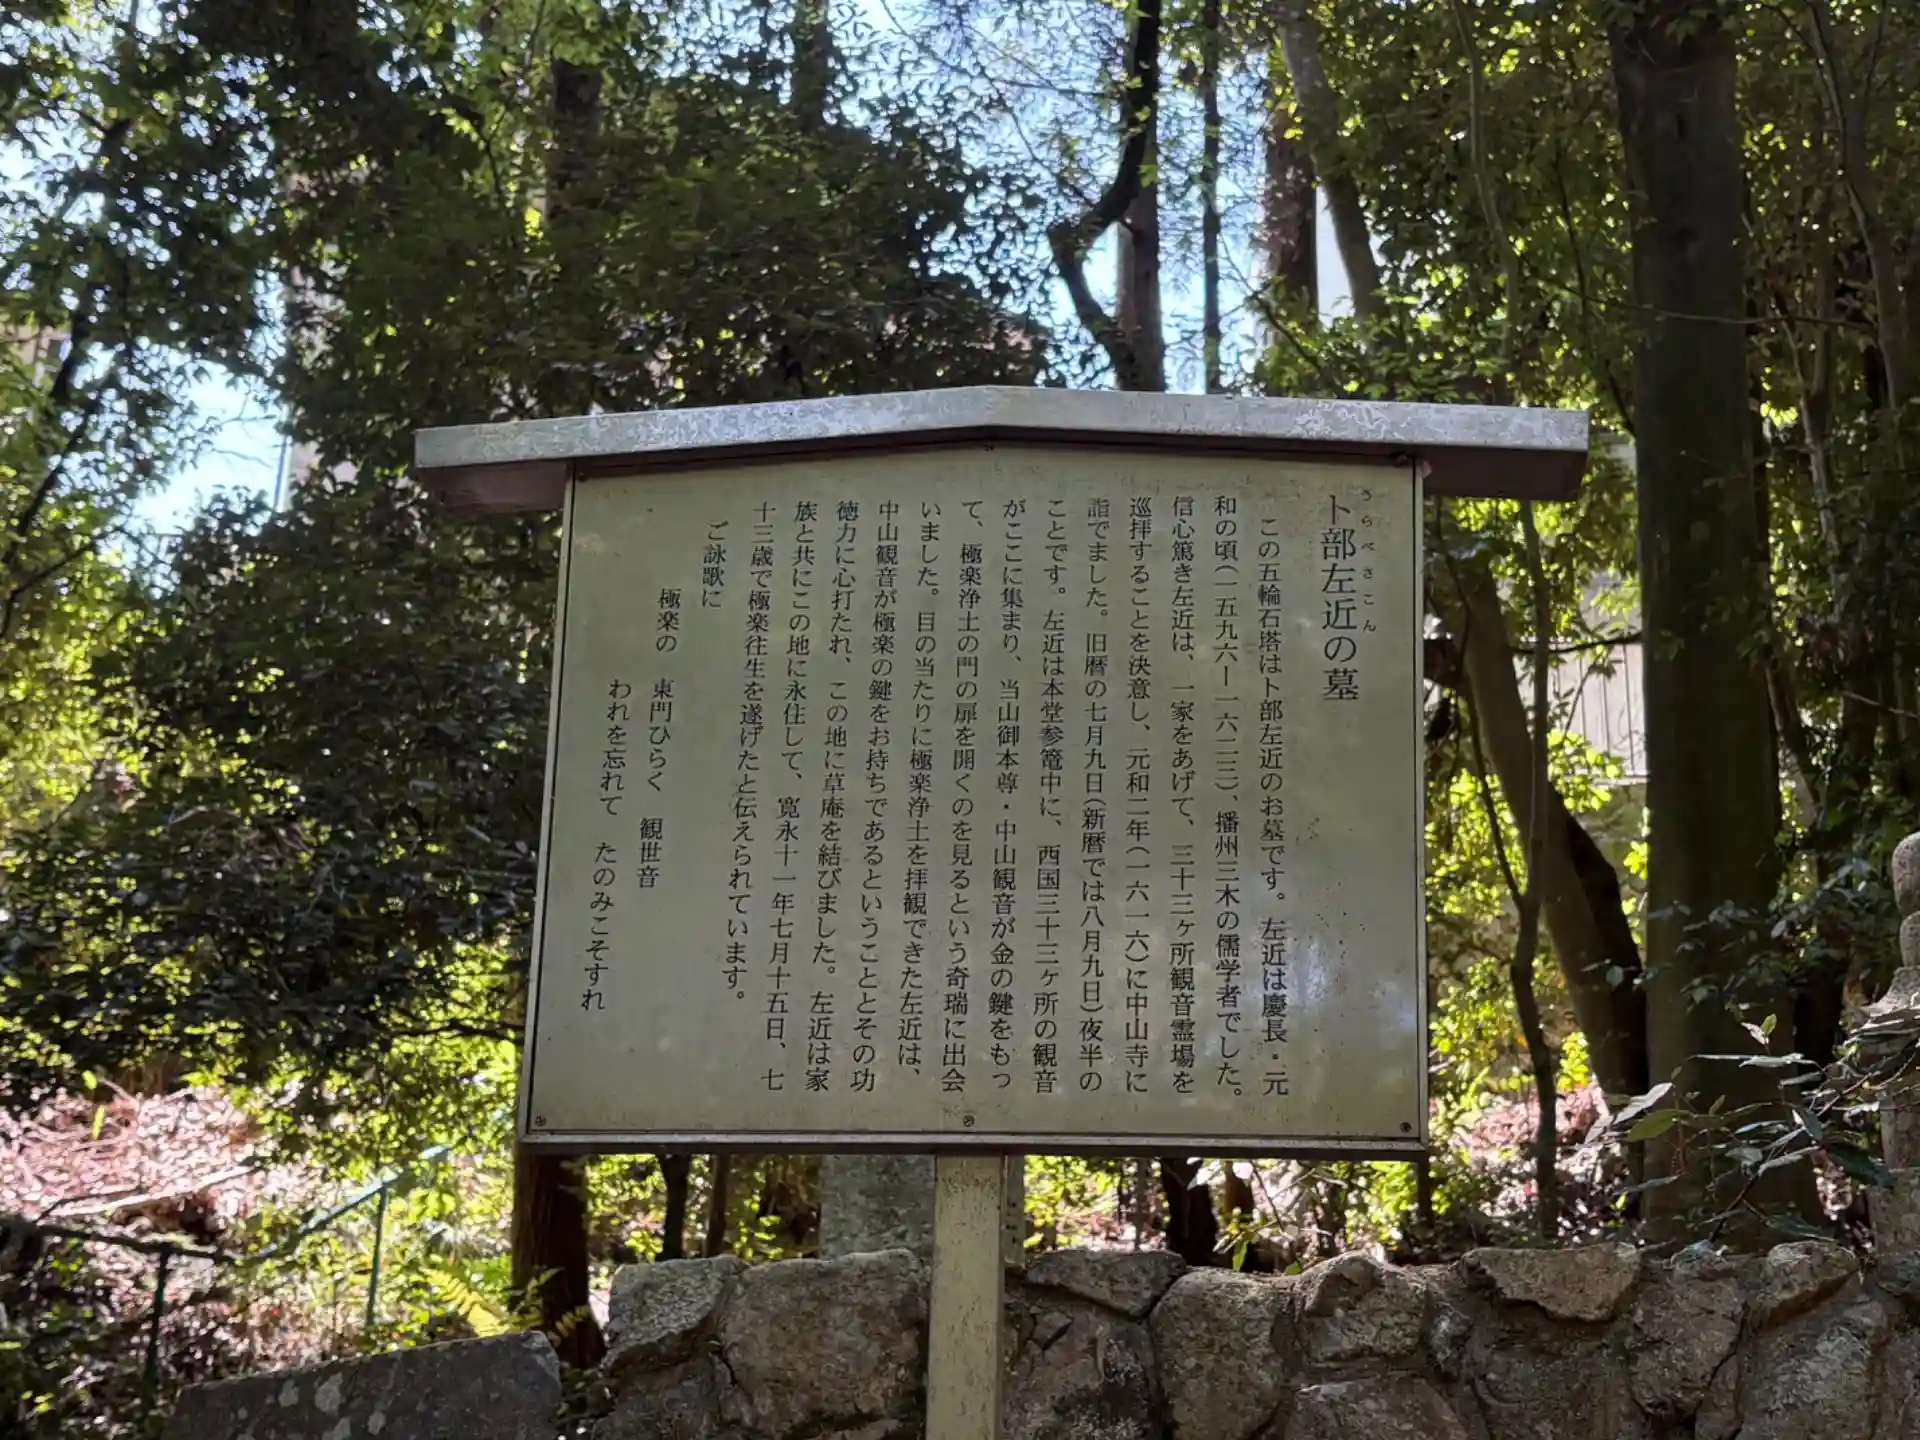 うらべさこん
卜部左近の墓
この五輪石塔は卜部左近のお墓です。左近は慶長・元
和の頃(一五九六ー一六二三)、播州三木の儒学者でした。
信心篤き左近は、一家をあげて、三十三ヶ所観音霊場を
巡拝することを決意し、元和二年(一六一六)に中山寺に
詣でました。旧暦の七月九日(新暦では八月九日)夜半の
ことです。左近は本堂参篭中に、西国三十三ヶ所の観音
がここに集まり、当山御本尊・中山観音が金の鍵をもっ
て、極楽浄土の門の扉を開くのを見るという奇瑞に出会
いました。目の当たりに極楽浄土を拝観できた左近は、
中山観音が極楽の鍵をお持ちであるということとその功
徳力に心打たれ、この地に草庵を結びました。左近は家
族と共にこの地に永住して、寛永十一年七月十五日、七
十三歳で極楽往生を遂げたと伝えられています。
ご詠歌に
極楽の 東門ひらく 観世音
われを忘れて たのみこそすれ